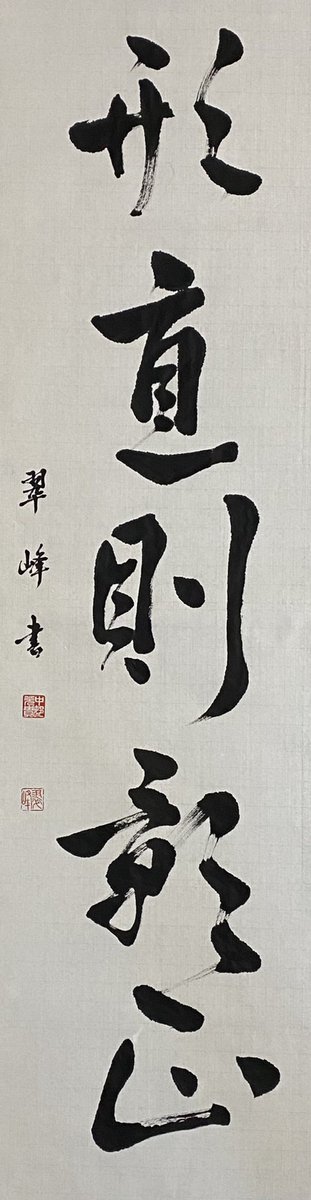 形直則影正
翠峰書